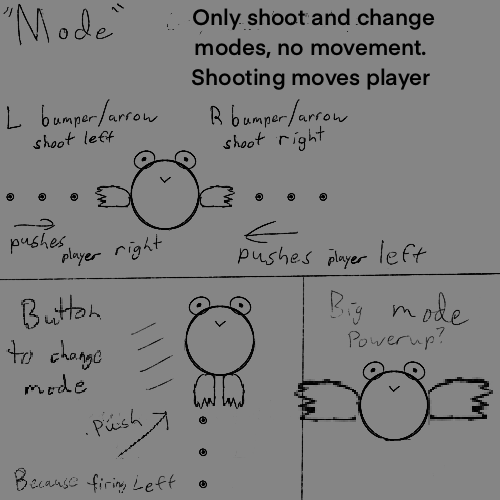 "Mode"
Only shoot and change
modes, no movement.
Shooting moves player
L bumper/arrow
shoot left
R bumper/arrow
shoot right
pushes
player right
pushes player left
Button
to change
mode
push
Because firing Left
Big mode
Powerup?